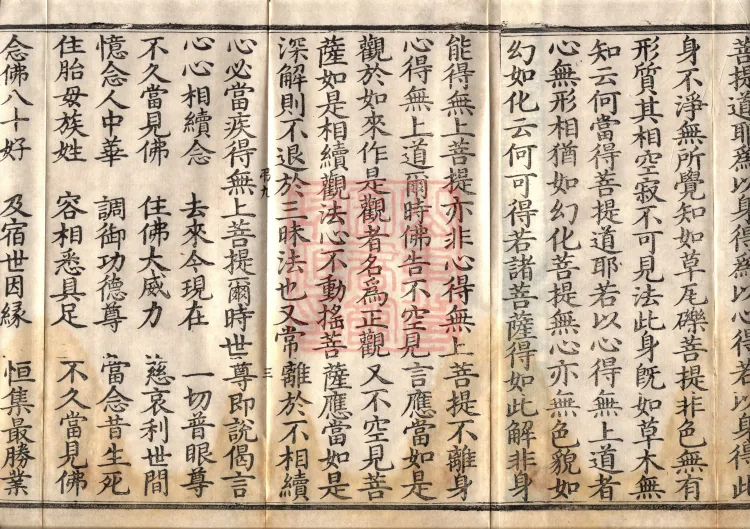 菩提道耶爲以身得爲以心得若以身得此
身不淨無所覺知如草瓦礫菩提非色無有
形質其相空寂不可見法此身既如草木無
知云何當得菩提道耶若以心得無上道者
心無形相猶如幻化菩提無心亦無色貌如
幻如化云何可得若諸菩薩得如此解非身
能得無上菩提亦非心得無上菩提不離身
心得無上道爾時佛告不空見言應當如是
觀於如來作是觀者名爲正觀又不空見菩
薩如是相續觀法心不動搖菩薩應當如是
深解則不退於三昧法也又常離於不相續
弔九 三
心必當疾得無上菩提爾時世尊即說偈言
心心相續念 去來今現在 一切普眼尊
不久當見佛 住佛大威力 慈哀利世間
憶念人中華 調御功德尊 當念昔生死
住胎母族姓 容相悉具足 不久當見佛
念佛八十好 及宿世因緣 恒集最勝業